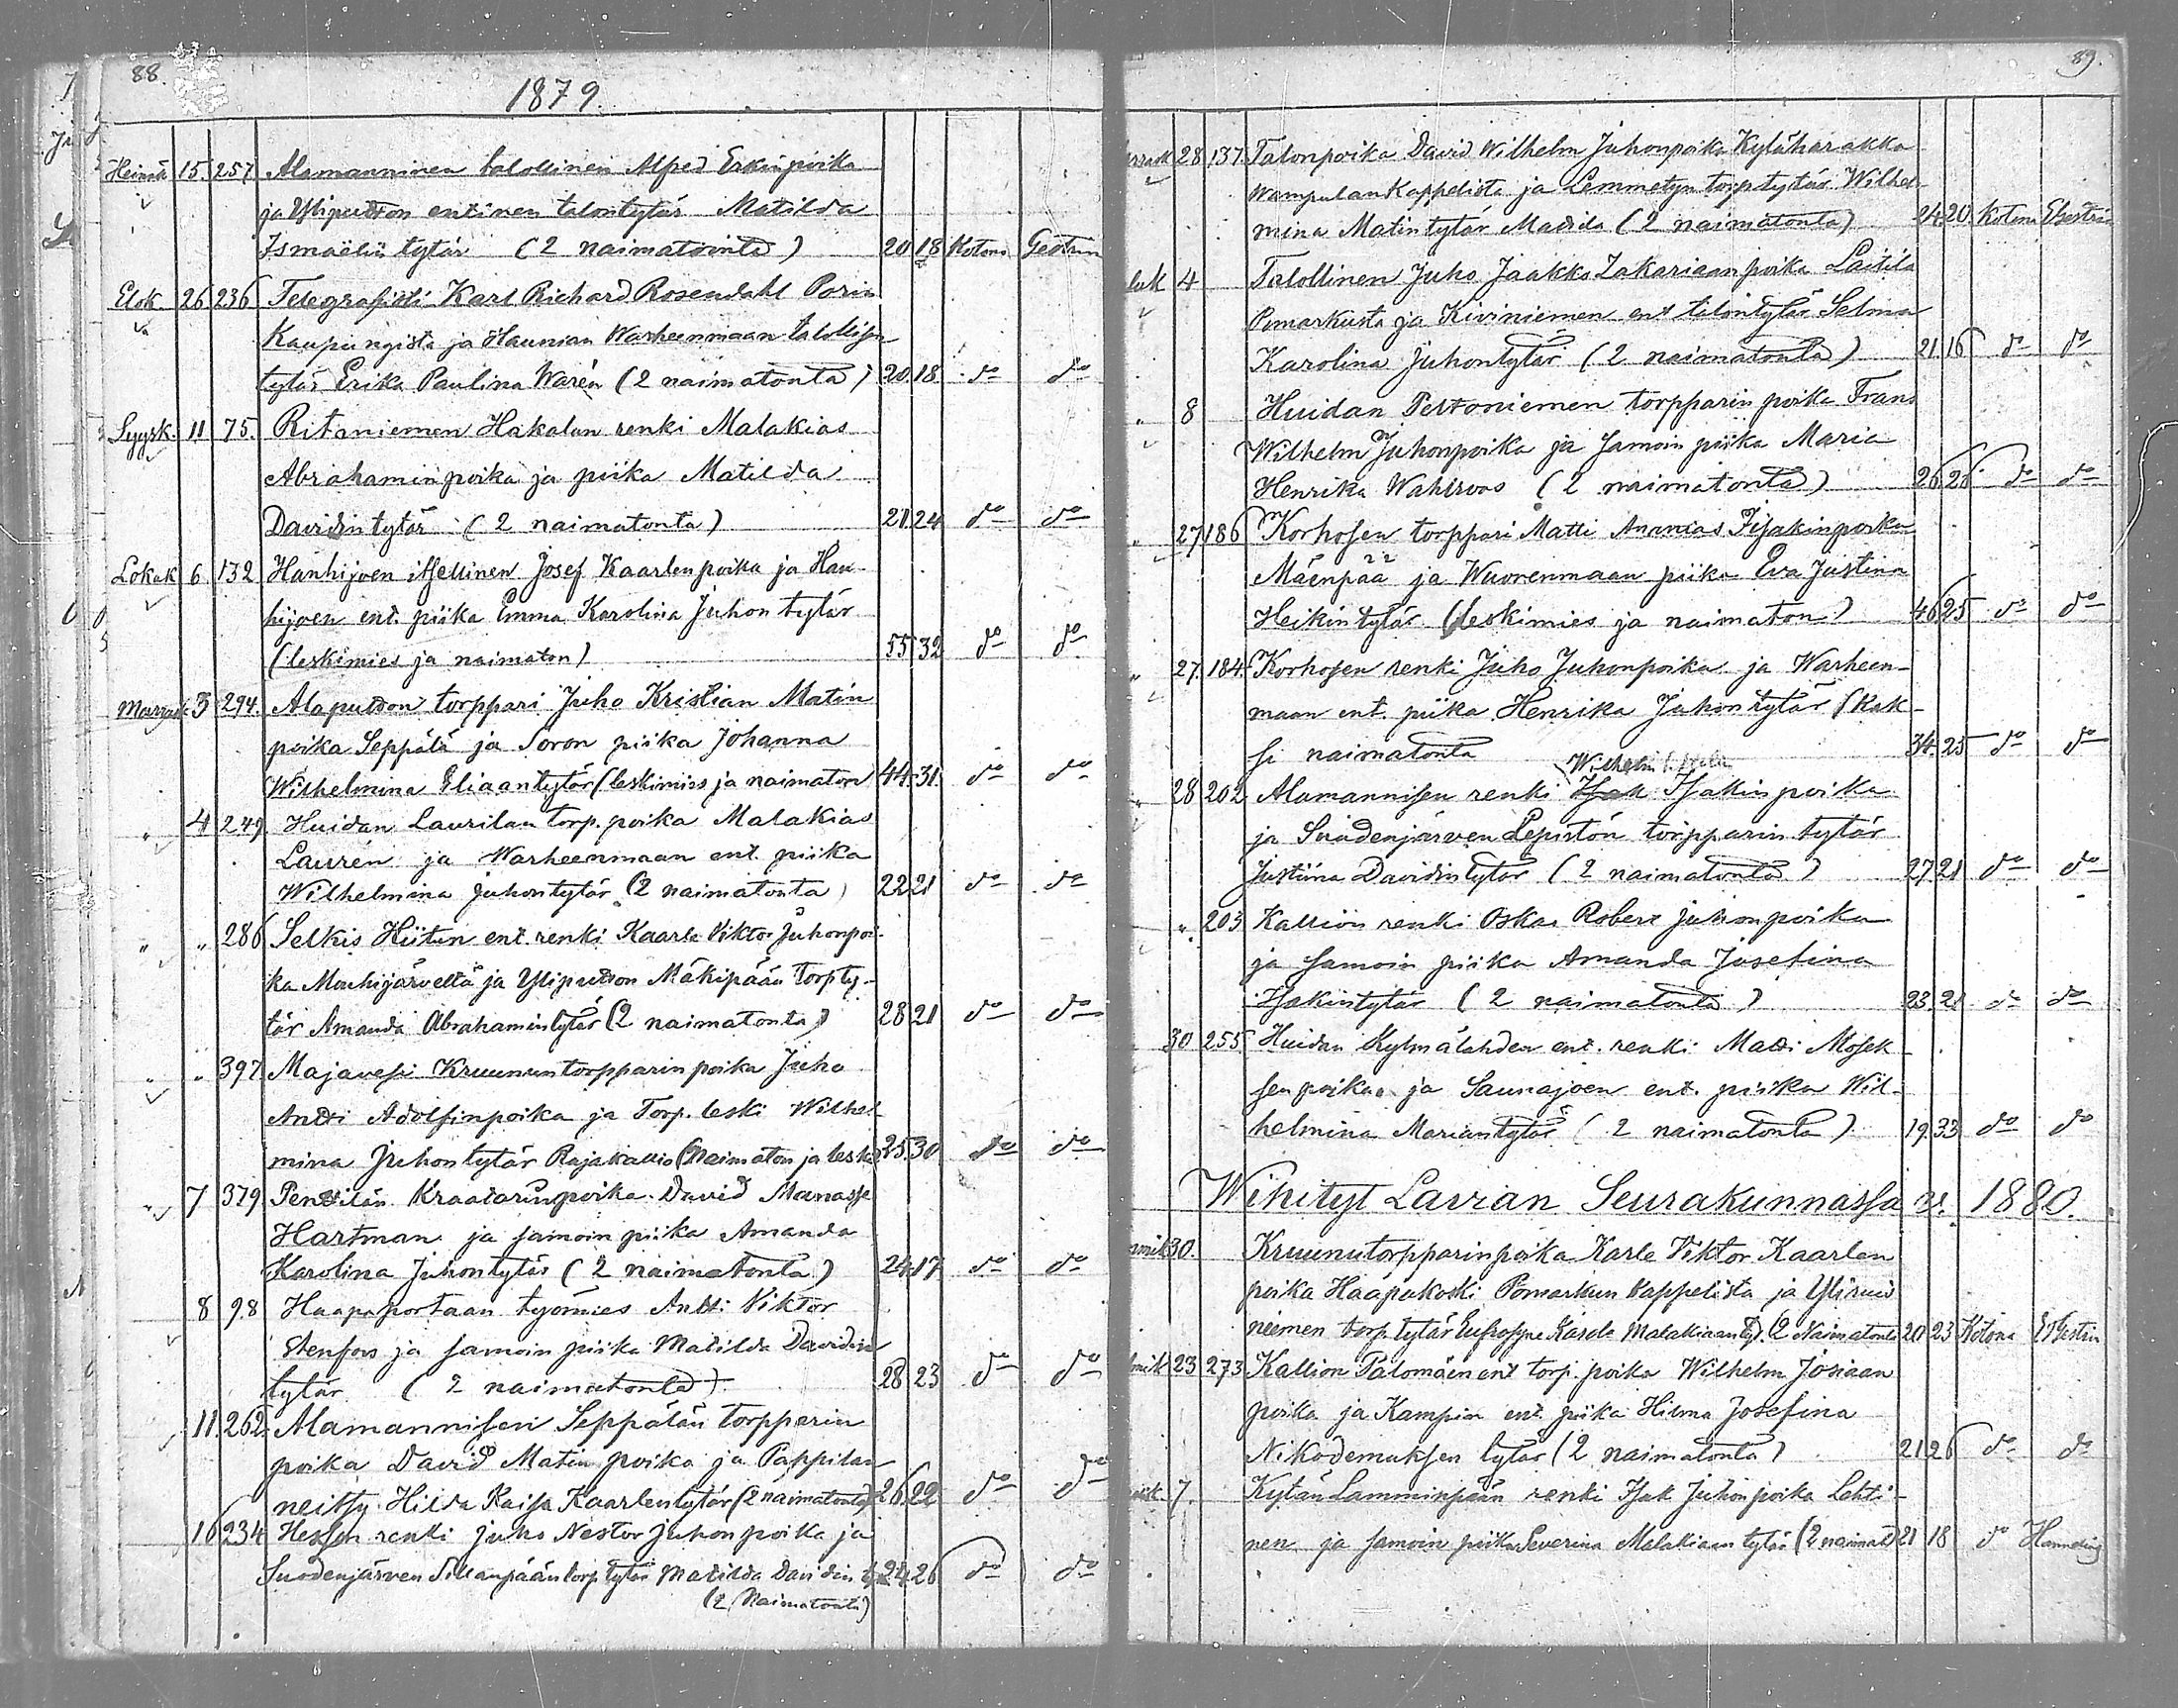 88.
1879.
Heinä 15. 257 Alamanninen talollinen Alfred Erkinpoika
ja Yliputton entinen talontytär Matilda
Ismaelin tytär (2 naimatointa) 20 18 Kotona
Elok. 26 236 Telegrafisti Karl Richard Rosendahl Porin
Kaupungista ja Haunian Warheenmaan talollisen
tytär Erika Paulina Warén (2 naimatonta) 20. 18 do do
Syysk. 11 75. Ritaniemen Hakalan renki Malakias
Abrahaminpoika ja piika Matilda
Davidin tytär (2 naimatonta) 21 24 do do
Lokak 6. 132 Hanhijoen itsellinen Josef Kaarlenpoika ja Han-
hijoen ent. piika Emma Karolina Juhon tytär
(leskimies ja naimaton) 55 32 do do
Marrask 3 294. Alaputton torppari Juho Kristian Matin
poika Seppälä ja Soron piika Johanna
Wilhelmina Eliaantytär (leskimies ja naimaton) 44. 31. do do
" 4 249 Huidan Laurilan torp. poika Malakias
Laurén ja Warheenmaan ent. piika
Wilhelmina Juhontytär (2 naimatonta) 22 21 do do
" " 286 Selkis Hiitun ent. renki Kaarle Viktor Juhonpoi-
ka Mouhijärveltä ja Yliputton Mäkipään torp ty-
tär Amanda Abrahamintytär (2 naimatonta) 28 21 do do
" " 397 Majavesi Kruununtorpparin poika Juho
Antti Adolfinpoika ja Torp. leski Wilhel-
mina Juhontytär Rajakallio (Naimaton ja leski) 25. 30 do do
" 7 379 Penttilän Kraatarinpoika David Manasse
Hartman ja samoin piika Amanda
Karolina Juhontytär (2 naimatonta) 24. 17 do do
8 98 Haapaportaan työmies Antti Viktor
Stenfors ja samoin piika Matilda Davidin
tytär (2 naimatonta) 28 23 do do
11. 262. Alamannisen Seppälän torpparin
poika David Matin poika ja Pappilan
neitsy Hilda Kaisa Kaarlentytär (2 naimatonta) 26 22 do do
16 234 Hessen renki Juho Nestor Juhonpoika ja
Suodenjärven Sillanpään torp tytär Matilda Davidin ty 24 26 do do
(2 Naimatonta)
89.
28 137. Talonpoika David Wilhelm Juhonpoika Kyläharakka
Wampulan Kappelista ja Lemmetyn torp tytär Wilhel-
mina Matintytär Mattila (2 naimatonta) 24. 20. Kotona
4 Talollinen Juho Jaakko Zakariaanpoika Laitila
Pomarkusta ja Kiviniemen ent talontytär Selma
Karolina Juhontytär (2 naimatonta) 21 16 do do
" 8 Huidan Pettoniemen torpparin poika Frans
Wilhelm Juhonpoika ja samoin piika Maria
Henrika Wahlroos (2 naimatonta) 26 26 do do
" 27 186 Korhosen torppari Matti Ananias Isakinpoika
Mäenpää ja Wuorenmaan piika Eva Justina
Heikintytär (leskimies ja naimaton) 46 25 do do
" 27. 184. Korhosen renki Juho Juhonpoika ja Warheen-
maan ent. piika Henrika Juhontytär (Kak-
si naimatonta 34. 25 do do
Wilhelm
28 202 Alamannisen renki Isak Isakinpoika
ja Suodenjärven Lepistön torpparin tytär
Justiina Davidintytär (2 naimatonta) 27 21 do do
" 203 Kallion renki Oskar Robert Juhonpoika
ja samoin piika Amanda Josefina
Isakintytär (2 naimatonta) 23. 21 do do
30 255 Huidan Kylmälahden ent. renki Matti Mosek-
sen poika ja Saunajoen ent. piika Wil-
helmina Mariantytär (2 naimatonta) 19. 33 do do
Wihityt Lavian Seurakunnassa v. 1880.
30. Kruunutorpparinpoika Karle Viktor Kaarlen
poika Haapakoski Pomarkun kappelista ja
niemen torp. tytär Eufrosyne Karola Malakiaanty. (2 Naimatonta 20 23 Kotona
23 273 Kallion Palomäen ent torp. poika Wilhelm Josiaan
poika ja Kampin ent. piika Hilma Josefina
Nikodemuksen tytär (2 naimatonta) 21 26 do do
7. Kylän Lamminpään renki Isak Juhonpoika Lehti-
nen ja samoin piika Severina Malakiaan tytär (2 naimat) 21 18 do